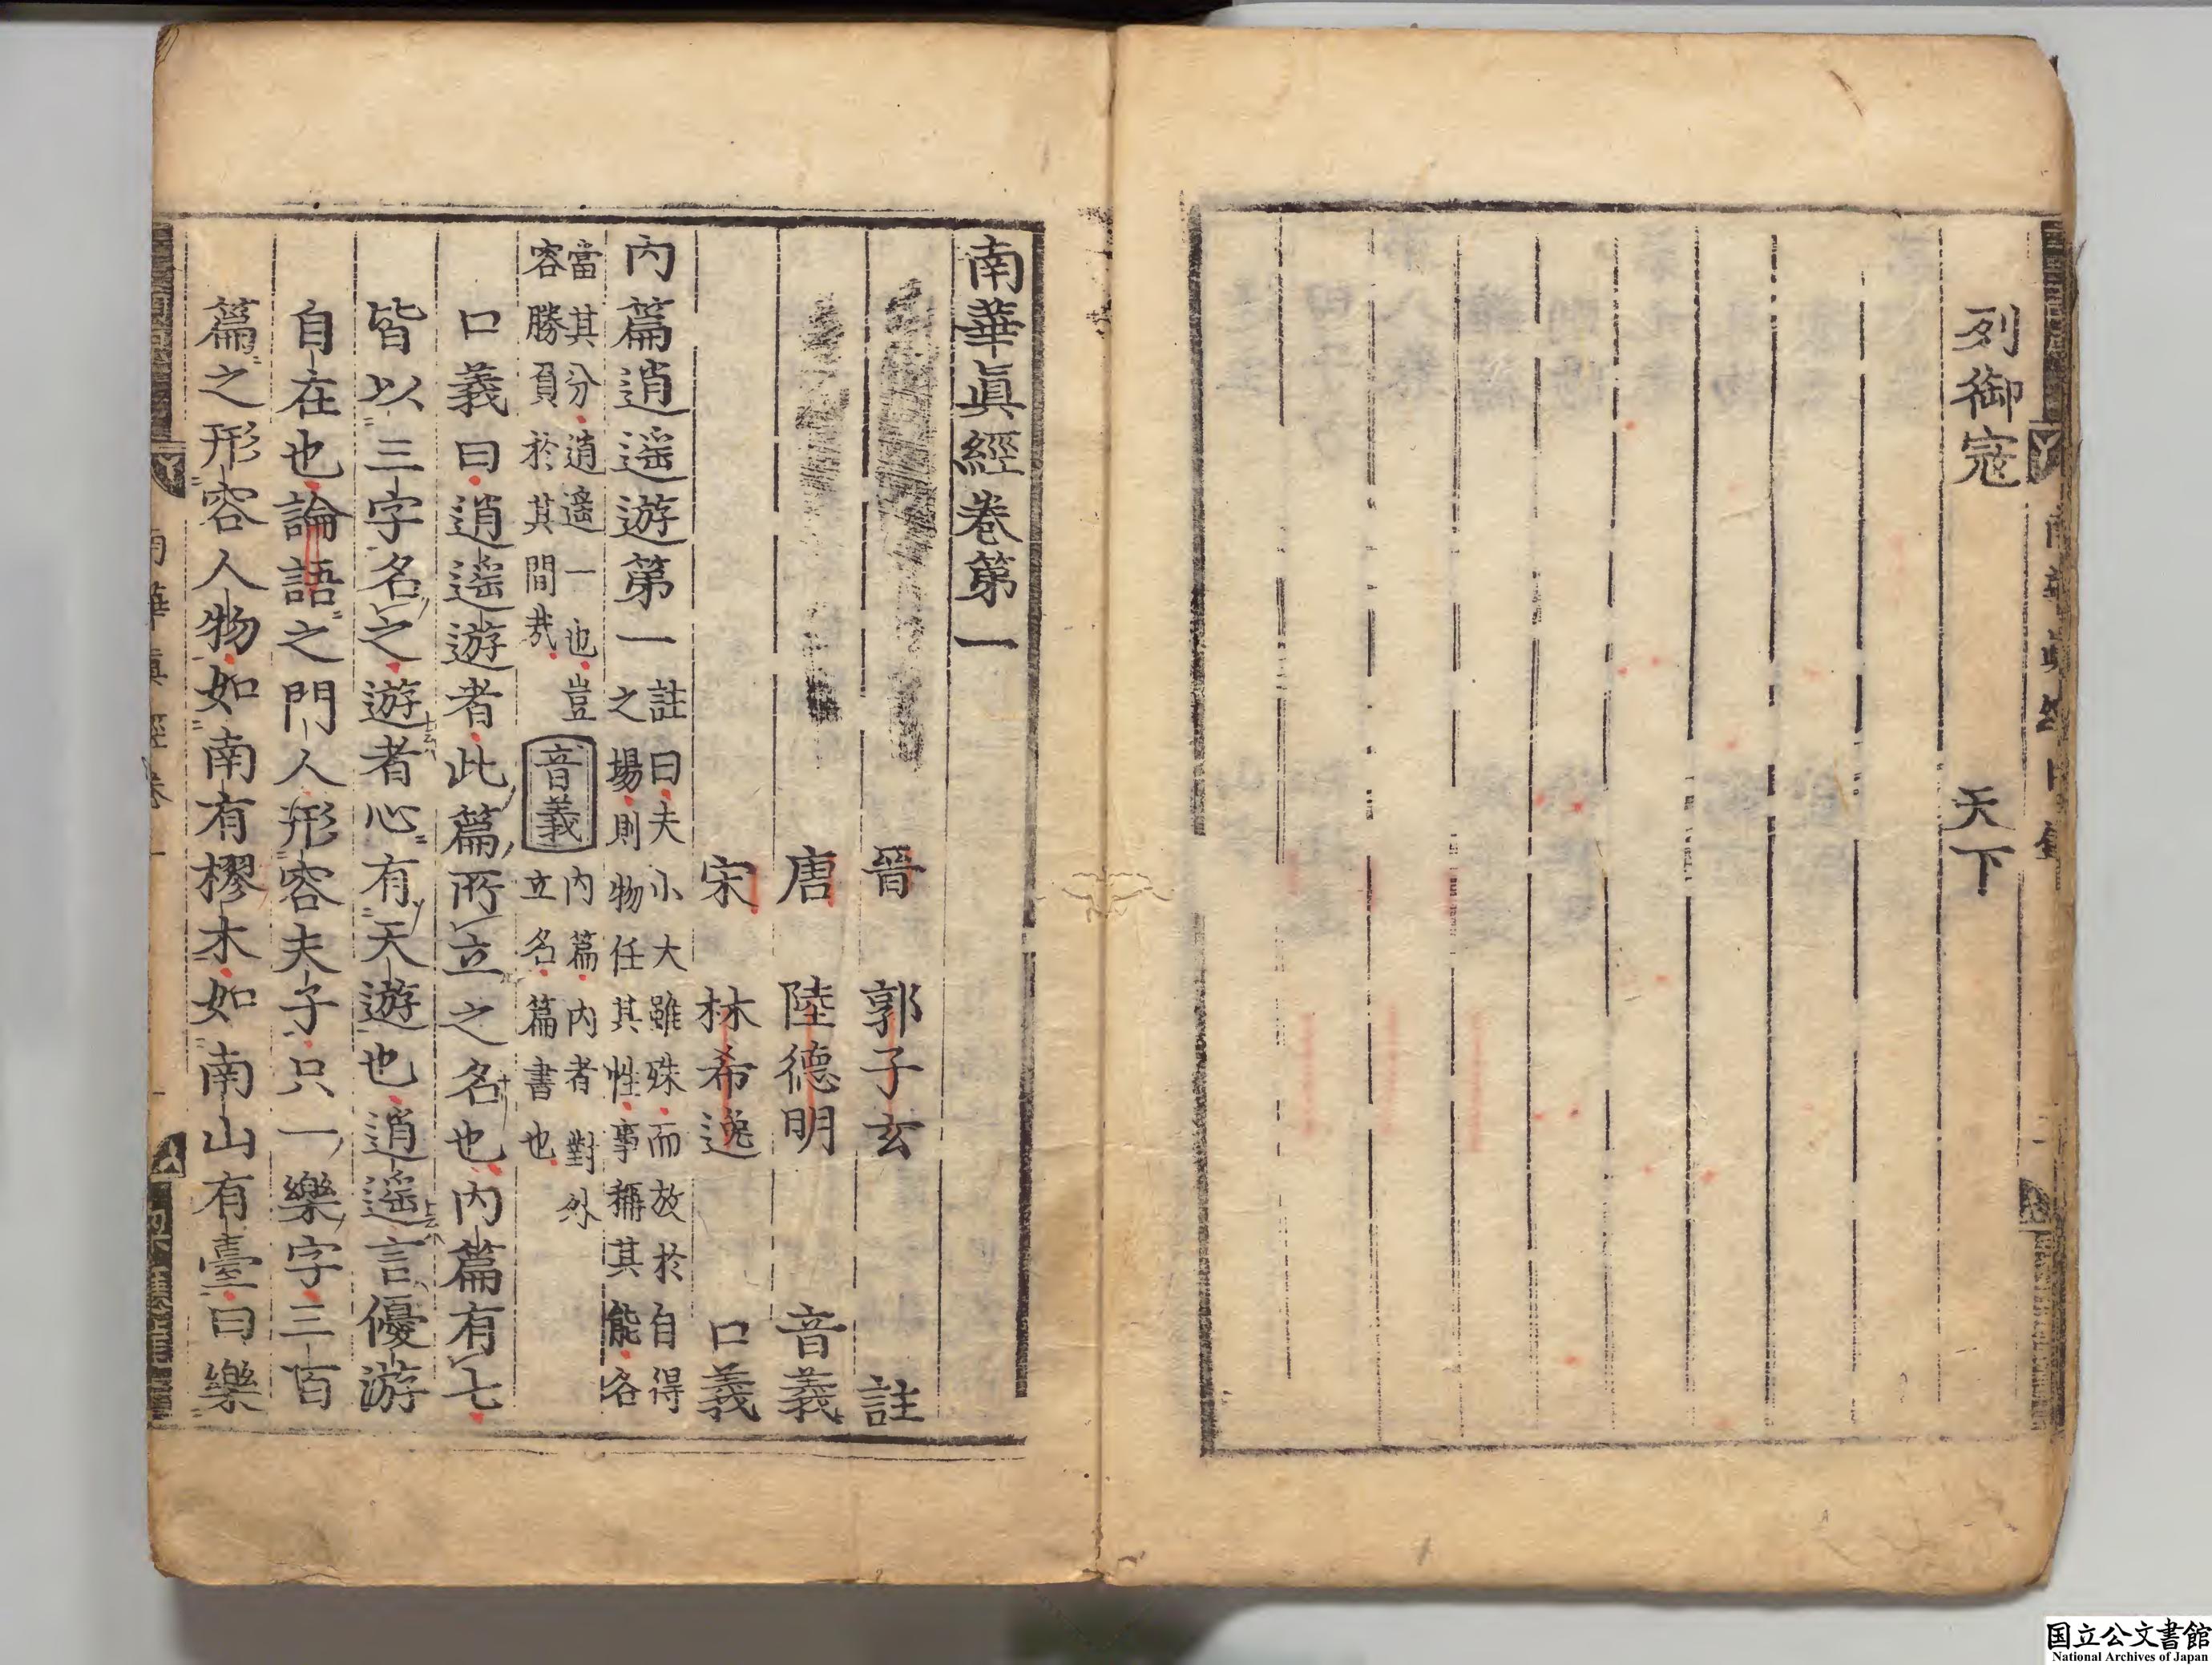 列御寇　天下
南華眞經卷第一
晉　郭子玄　註
唐　陸德明　音義
宋　林希逸　口義
內篇逍遥遊第一 註曰夫小大雖殊而放於自得
之場則物任其性事稱其能各
當其分逍遥一也豈
容勝負於其間㢤 音義 內篇內者對外
立名篇書也
口義曰逍遥遊者此篇所立之名也內篇有七
皆以三字名之遊者心有天遊也逍遥言優游
自在也論語之門人形容夫子只一樂字三百
篇之形容人物如南有樛木如南山有臺曰樂
南華眞經卷一
国立公文書館
National Archives of Japan